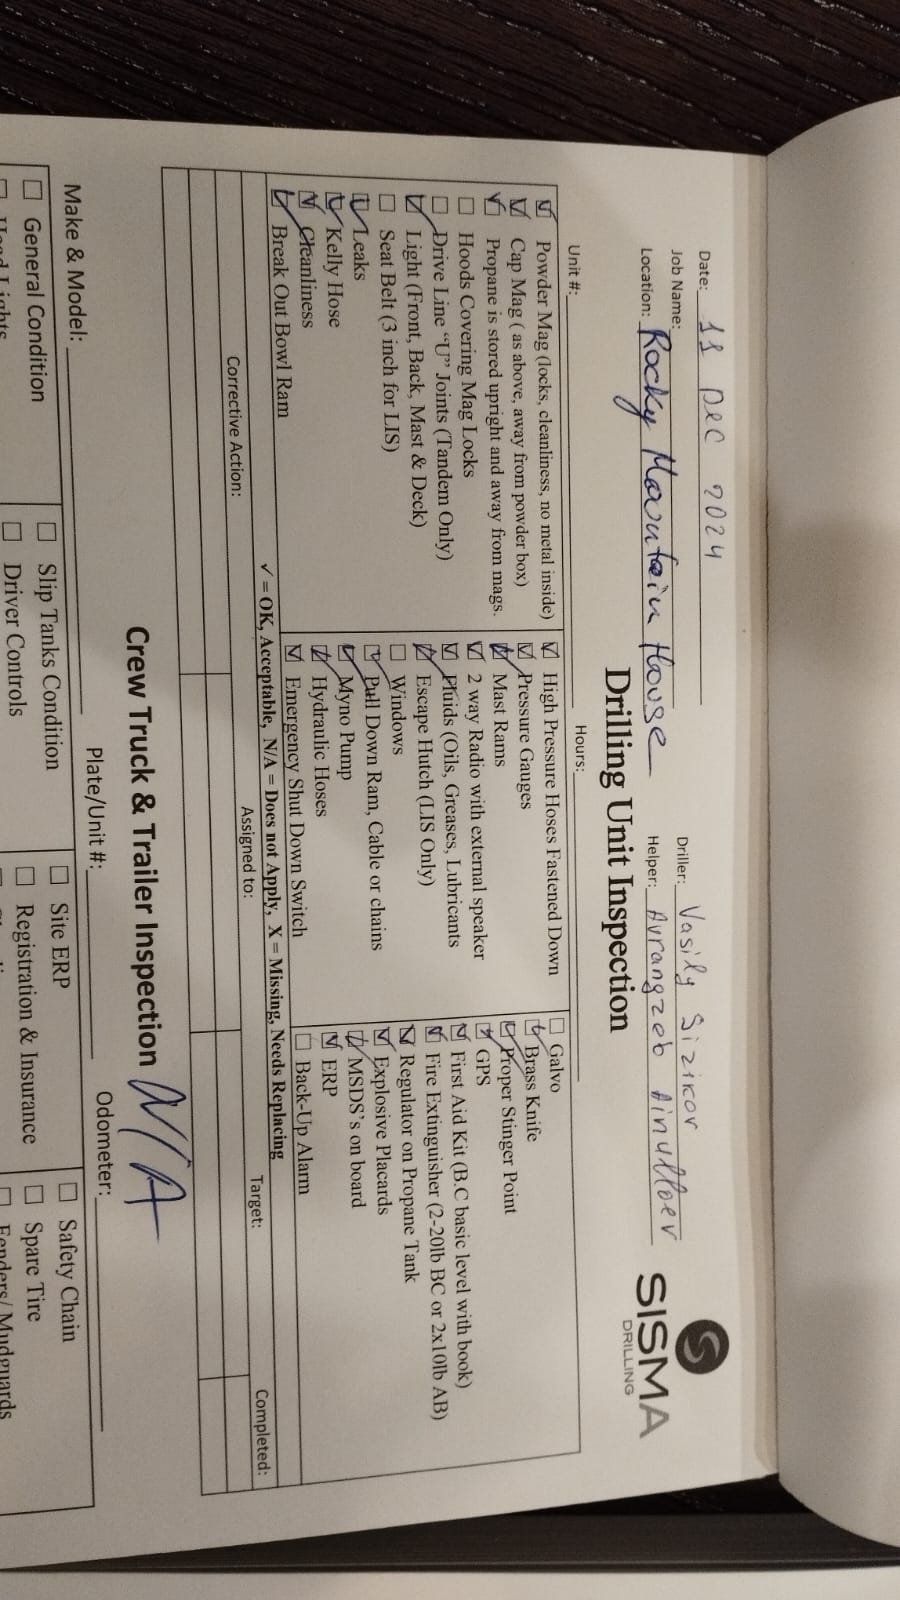 Date: 11 Dec 2024
Job Name:
Location: Rocky Mountain House
Driller: Vasily Sizikov
Helper: Avrangzeb Ainulloev
SISMA
DRILLING
Drilling Unit Inspection
Unit #:
Hours:
☑ Powder Mag (locks, cleanliness, no metal inside)
☑ Cap Mag ( as above, away from powder box)
☑ Propane is stored upright and away from mags.
☐ Hoods Covering Mag Locks
☐ Drive Line “U” Joints (Tandem Only)
☑ Light (Front, Back, Mast & Deck)
☐ Seat Belt (3 inch for LIS)
☑ Leaks
☑ Kelly Hose
☑ Cleanliness
☑ Break Out Bowl Ram
☑ High Pressure Hoses Fastened Down
☑ Pressure Gauges
☑ Mast Rams
☑ 2 way Radio with external speaker
☑ Fluids (Oils, Greases, Lubricants
☑ Escape Hutch (LIS Only)
☐ Windows
☑ Pull Down Ram, Cable or chains
☑ Myno Pump
☑ Hydraulic Hoses
☑ Emergency Shut Down Switch
☐ Galvo
☑ Brass Knife
☑ Proper Stinger Point
☑ GPS
☑ First Aid Kit (B.C basic level with book)
☑ Fire Extinguisher (2-20lb BC or 2x10lb AB)
☑ Regulator on Propane Tank
☑ Explosive Placards
☑ MSDS’s on board
☑ ERP
☐ Back-Up Alarm
✓ = OK, Acceptable, N/A = Does not Apply, X = Missing, Needs Replacing
Corrective Action:
Assigned to:
Target:
Completed:
Crew Truck & Trailer Inspection N/A
Make & Model:
Plate/Unit #:
Odometer:
☐ General Condition
☐ Head Lights
☐ Slip Tanks Condition
☐ Driver Controls
☐ Site ERP
☐ Registration & Insurance
☐ Safety Chain
☐ Spare Tire
☐ Fenders/ Mudguards